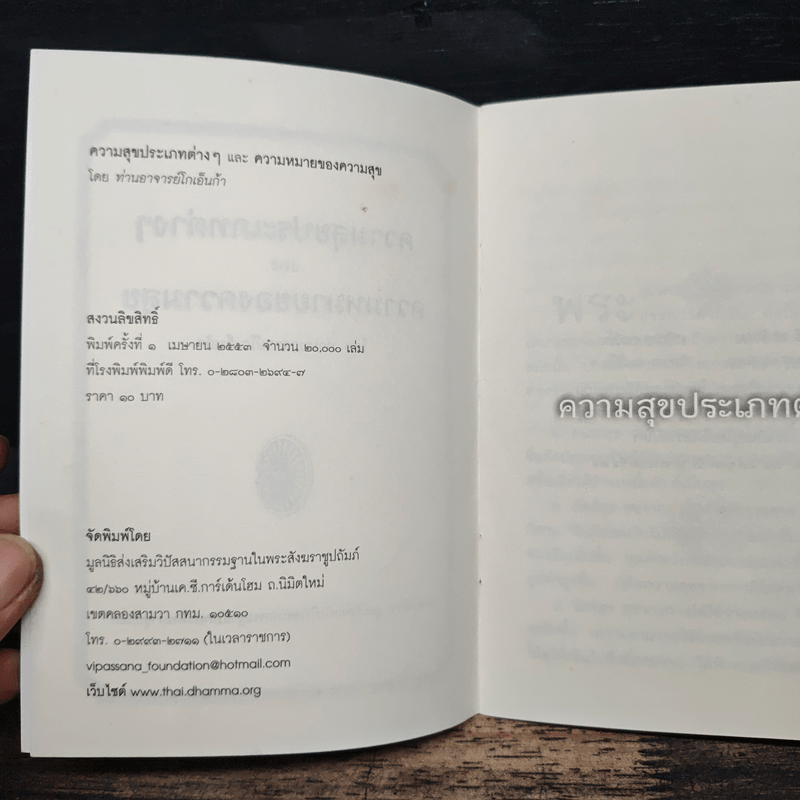 ความสุขประเภทต่างๆ และ ความหมายของความสุข
โดย ท่านอาจารย์โกเอ็นก้า
สงวนลิขสิทธิ์
พิมพ์ครั้งที่ ๑ เมษายน ๒๕๕๓ จำนวน ๒๐,๐๐๐ เล่ม
ที่โรงพิมพ์พิมพ์ดี โทร. ๐-๒๘๐๓-๒๖๙๔-๗
ราคา ๑๐ บาท
จัดพิมพ์โดย
มูลนิธิส่งเสริมวิปัสสนากรรมฐานในพระสังฆราชูปถัมภ์
๔๒/๖๖๐ หมู่บ้านเค.ซี.การ์เด้นโฮม ถ.นิมิตใหม่
เขตคลองสามวา กทม. ๑๐๕๑๐
โทร. ๐-๒๙๙๓-๒๗๑๑ (ในเวลาราชการ)
vipassana_foundation@hotmail.com
เว็บไซต์ www.thai.dhamma.org
ความสุขประเภท